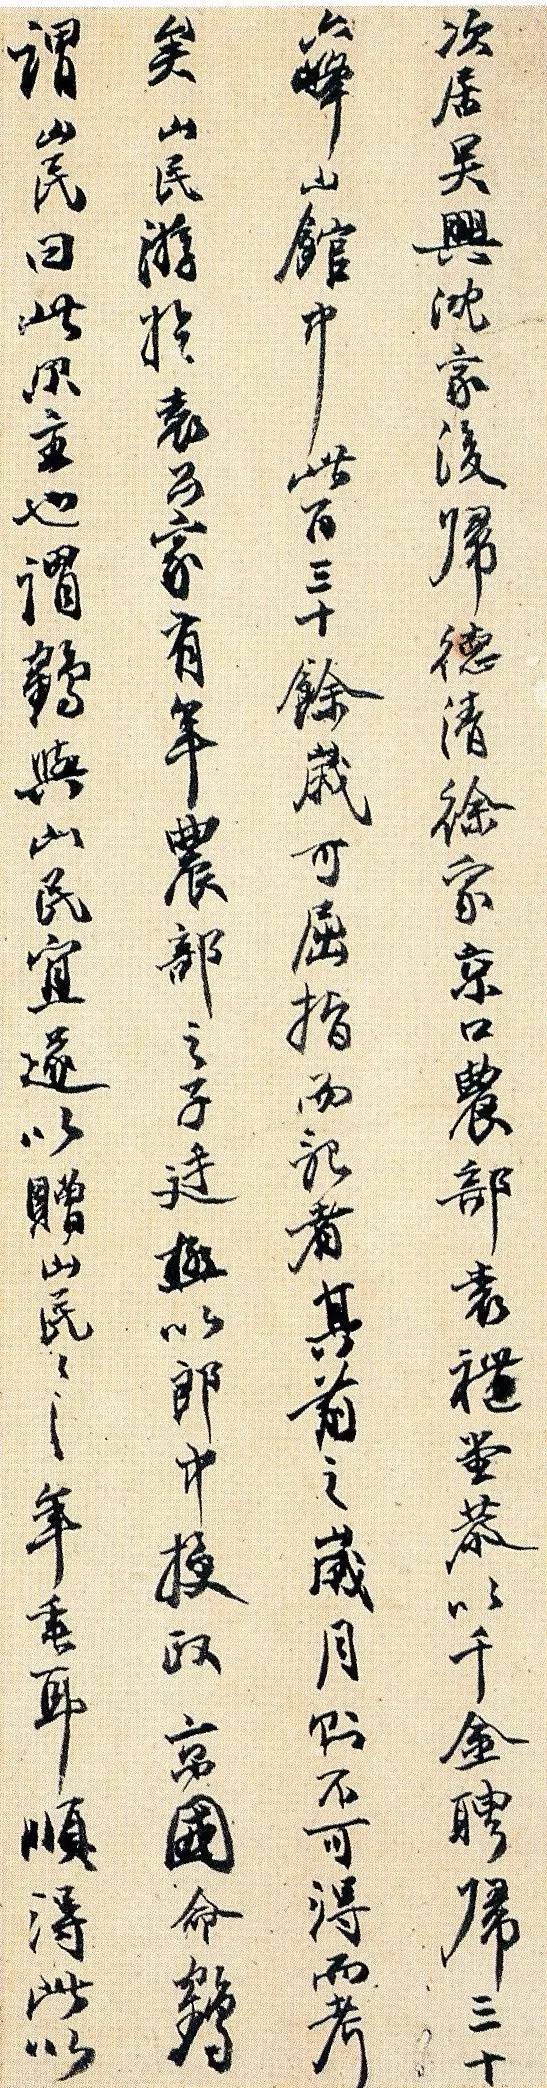 次居吴興沈家後歸德清徐家京口農部袁禮堂恭以千金聘歸三十
六峰山館中此百三十餘歲可屈指而記者其前之歲月則不可得而考
矣山民游於袁公家有年農部之子廷極以郎中授政京國命鶴
謂山民曰此汝主也謂鶴與山民宜遂以贈山民々之年垂耳順得此以